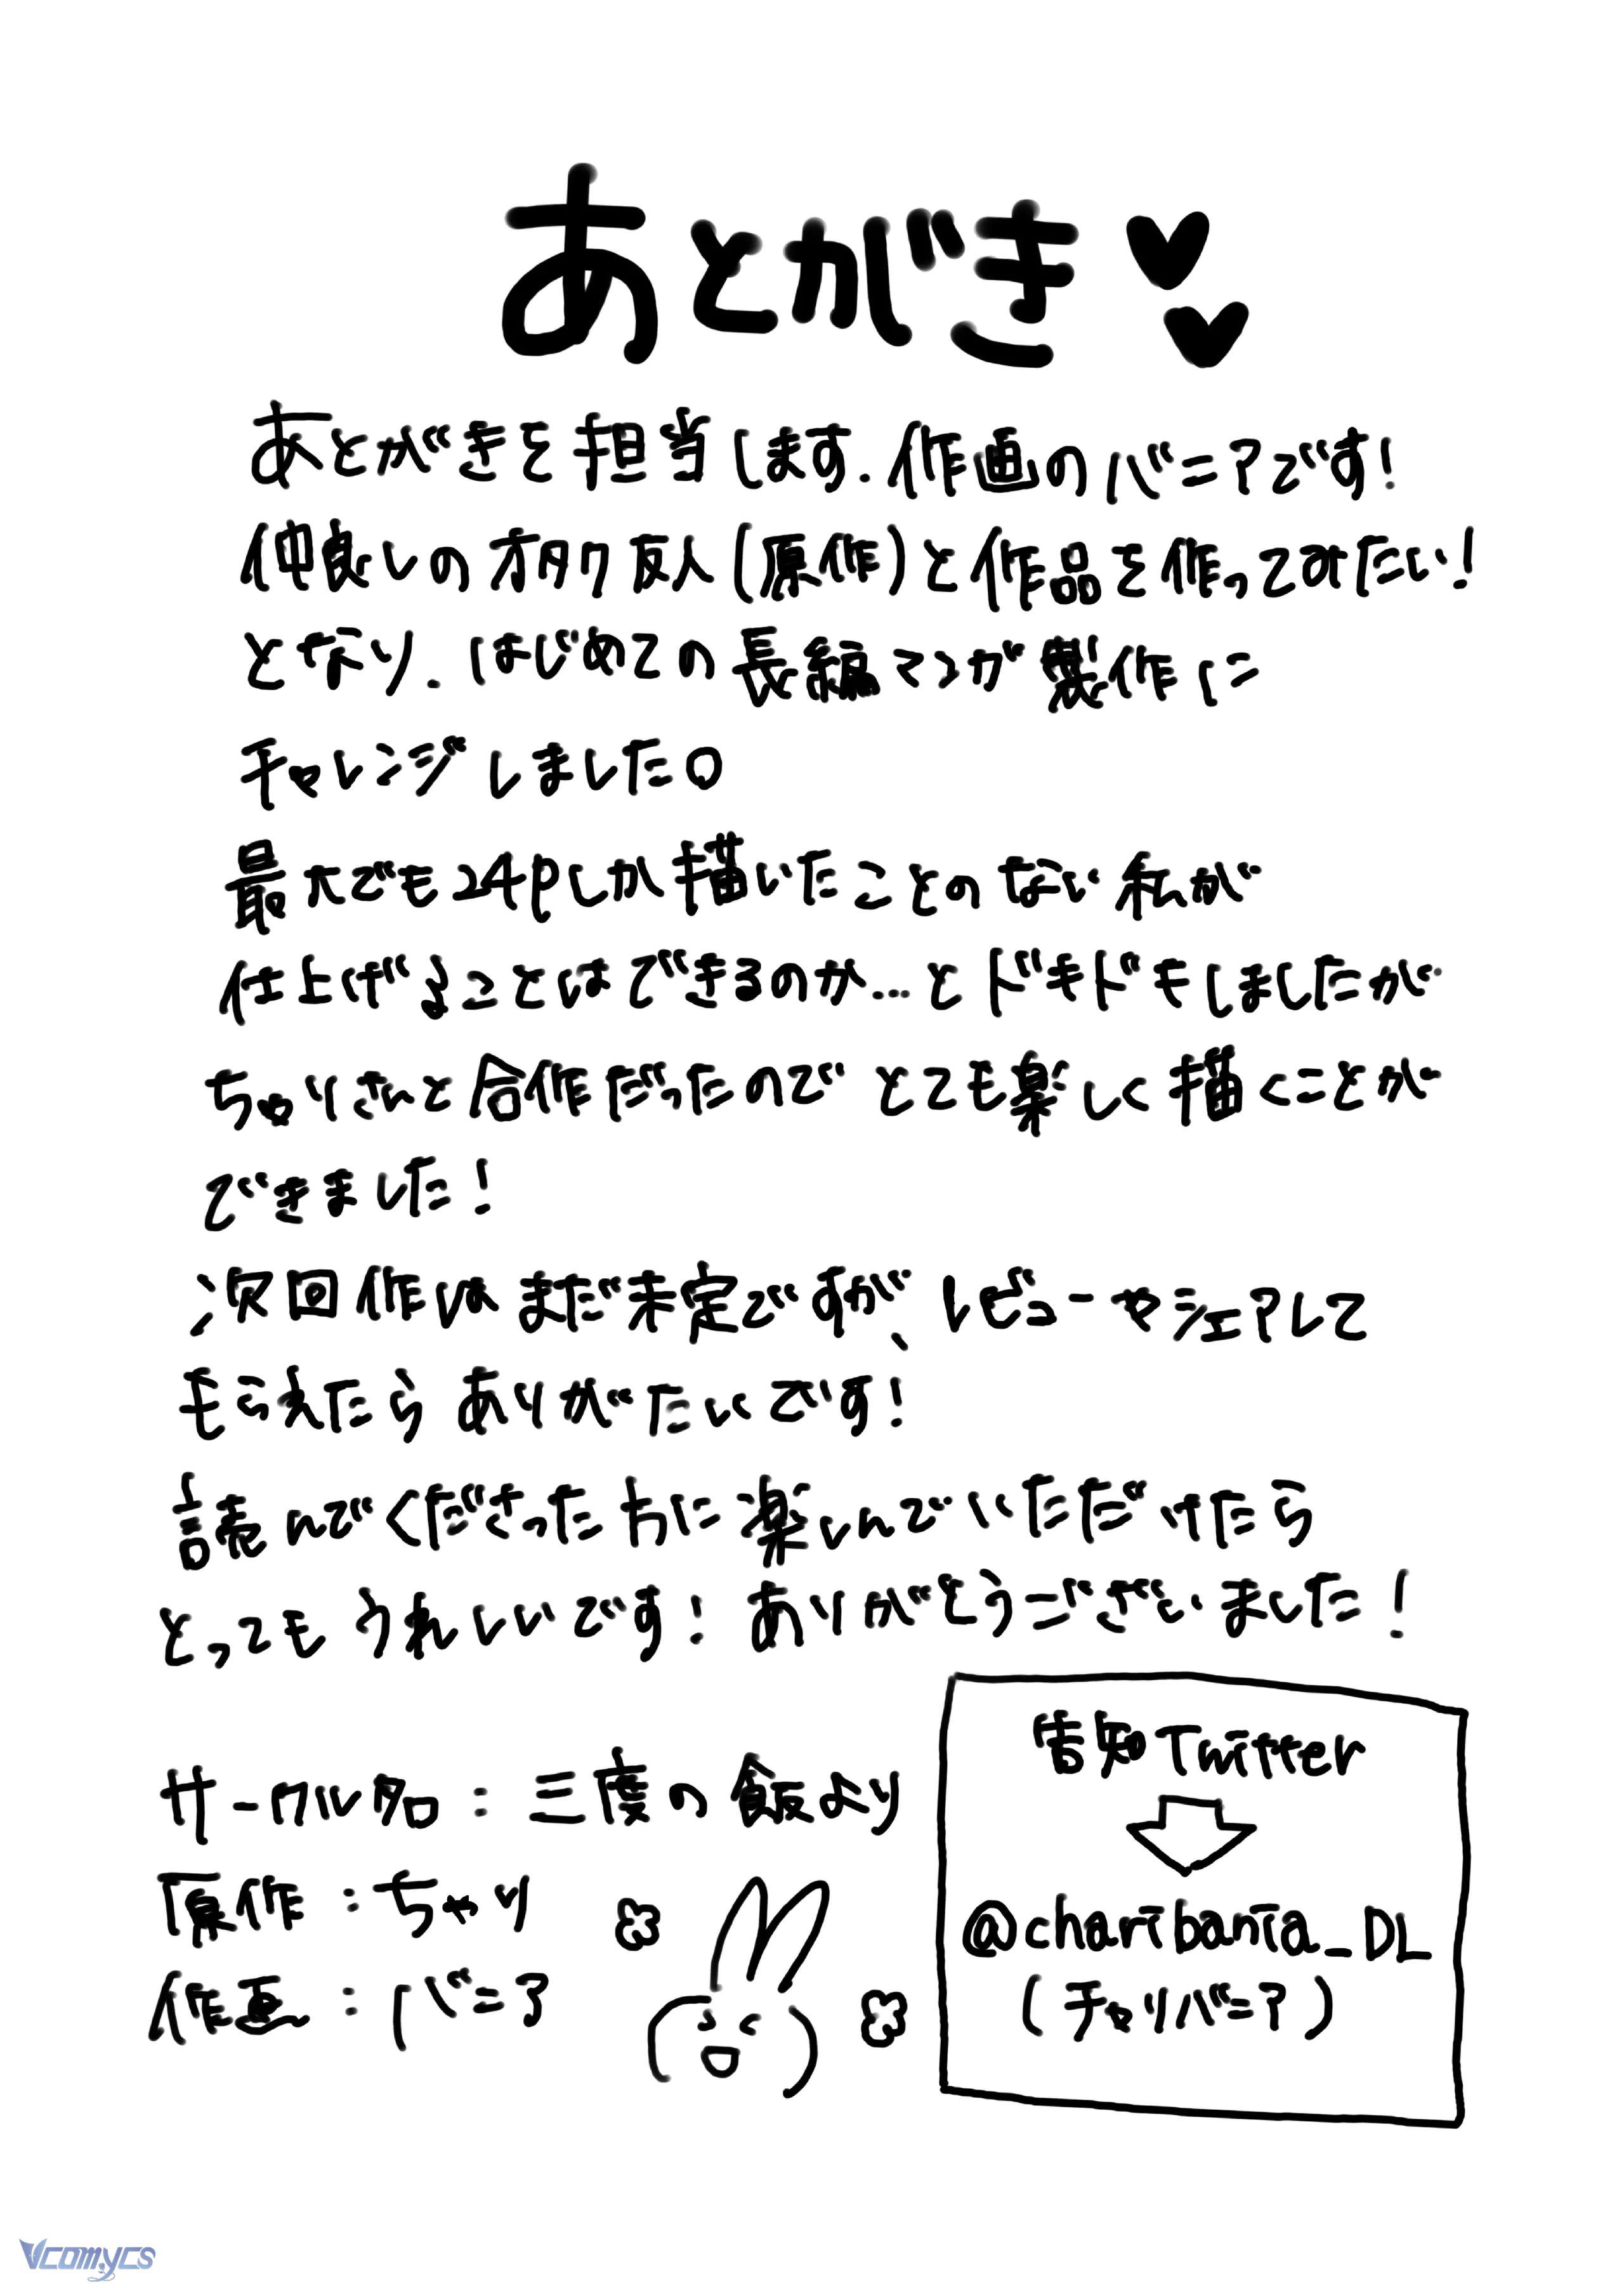 あとがき
あとがきを担当します.作画のバニアです!
仲良しのオタク友人(原作)と作品を作ってみたい!
となり.はじめての長編マンガ製作に
チャレンジしました。
最大でも24pしか描いたことのない私が
仕上げることはできるのか...とドキドキもしましたが
ちゃりさんと合作だったのでとても楽しく描くことが
できました!
次回作はまだ未定ですが、レビューやシェアして
もらえたらありがたいです!
読んでくださった方に楽しんでいただけたら
とってもうれしいです!ありがとうございました!
サークル名:三度の飯より
原作:ちゃり
作画:バニア
告知Twitter
@charibania_DL
(チャリバニア)
Vcomycs